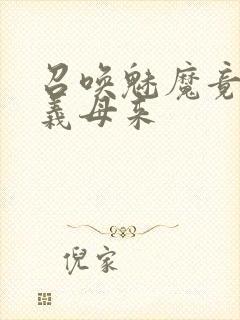 召唤魅魔竟
義母来
倪家